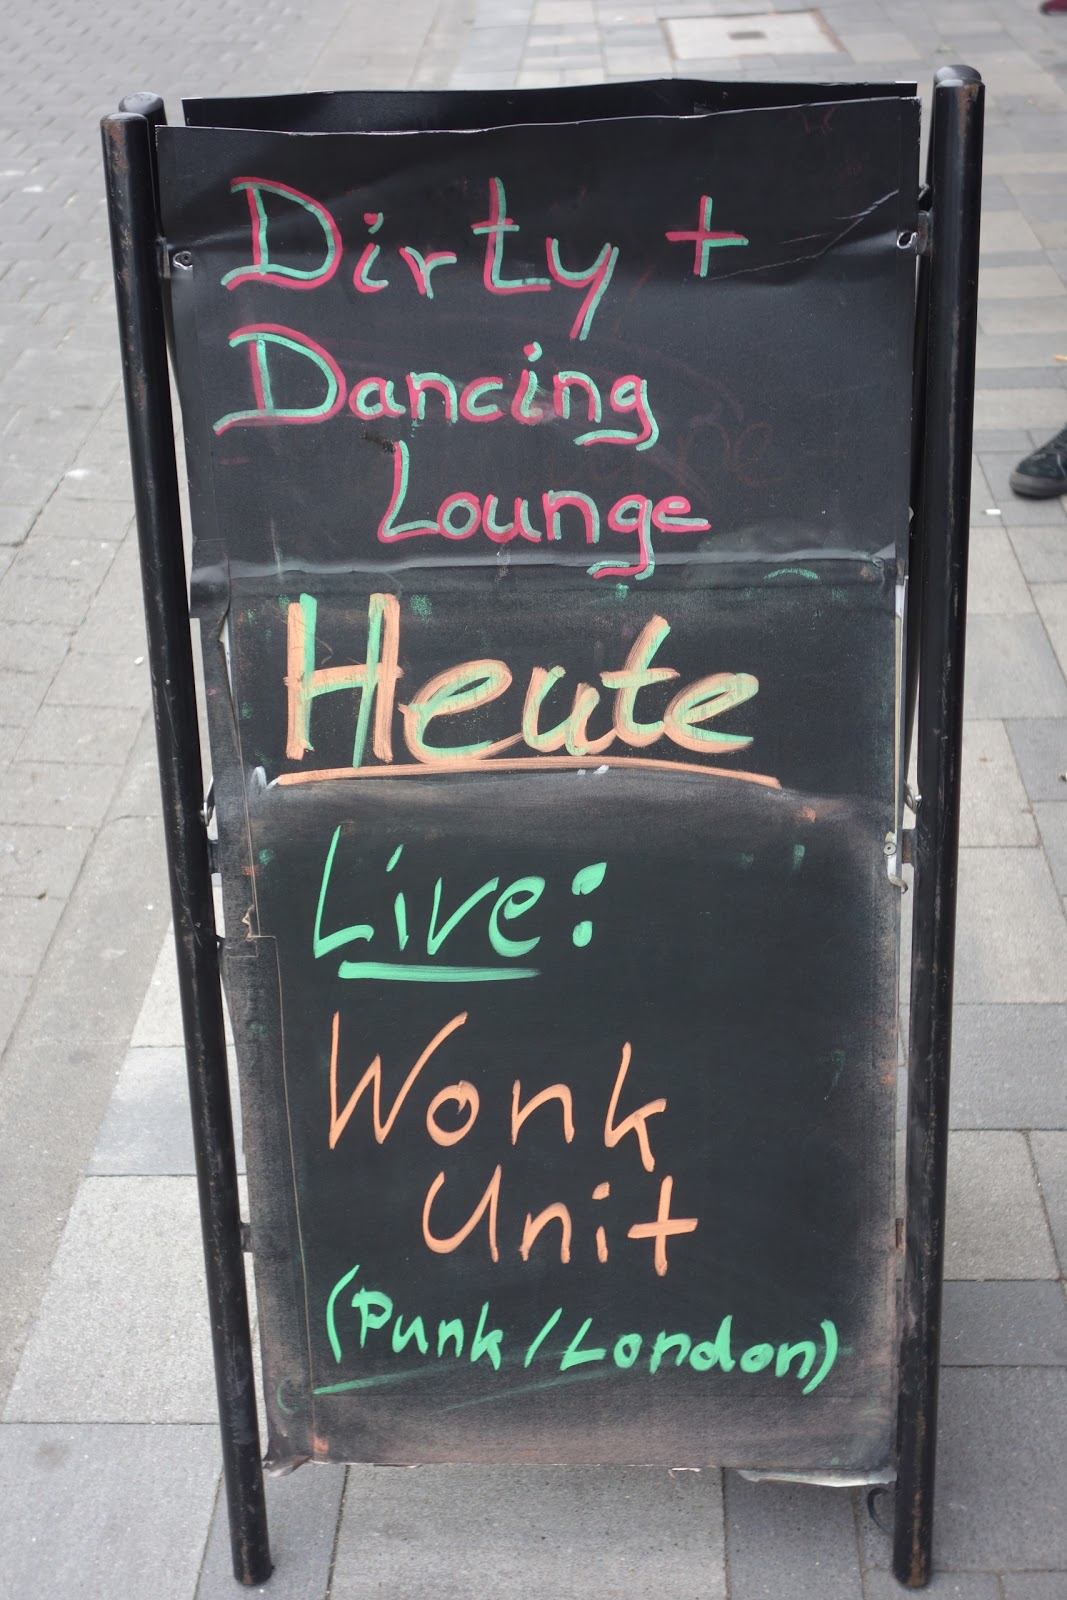 Dirty +
Dancing
Lounge
Heute
Live:
Wonk
Unit
(Punk/London)